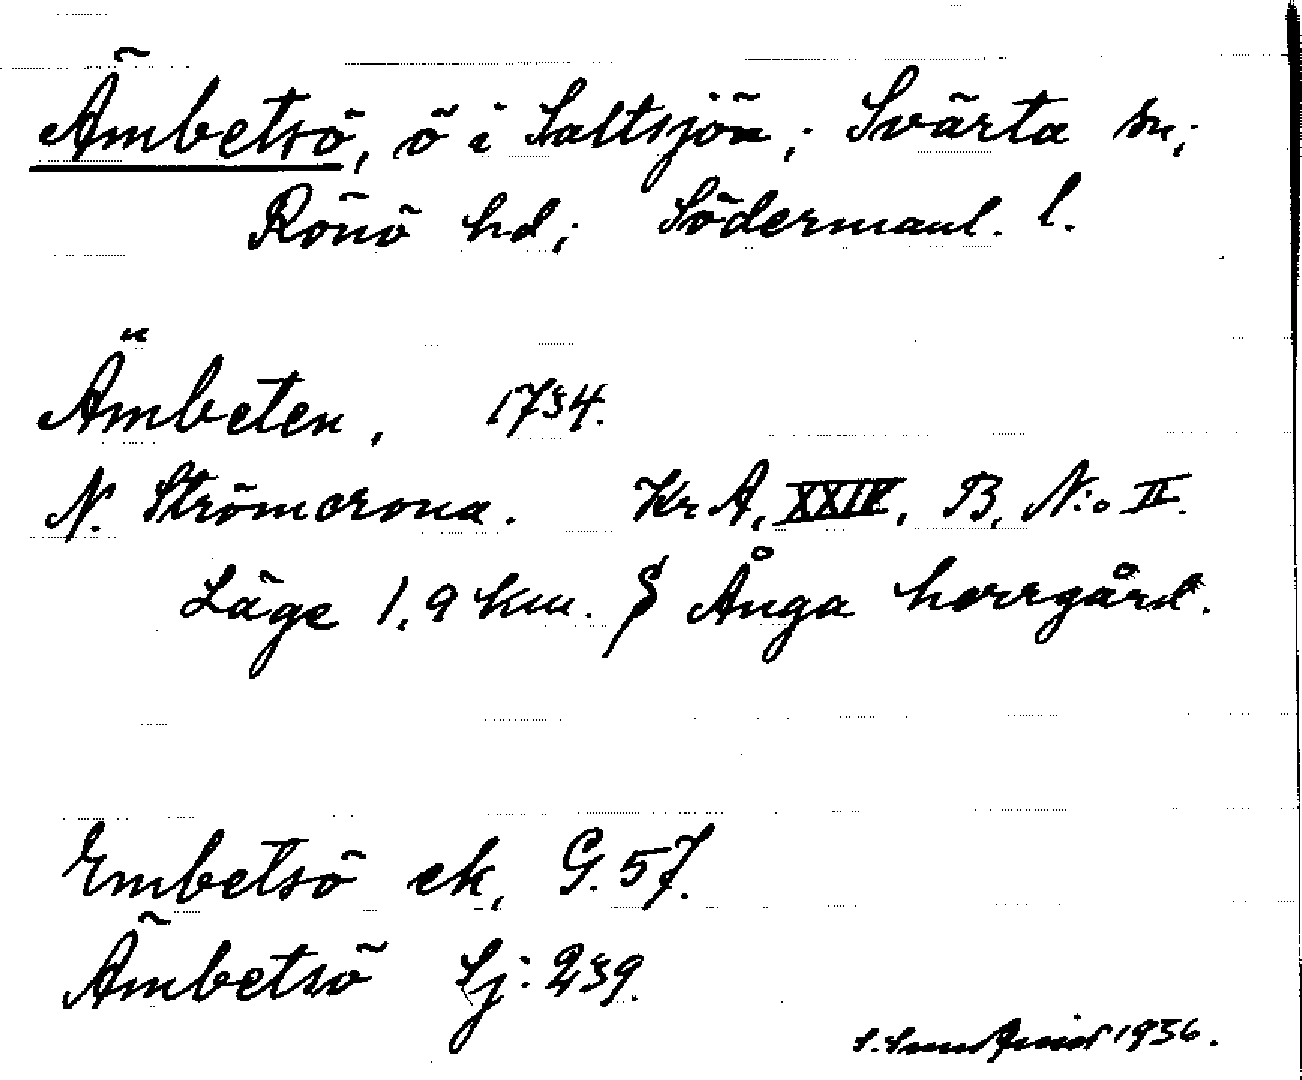 Ämbetsö, ö i Saltsjön; Svärta sn;
Rönö hd; Södermanl. l.
Ämbeten, 1734.
N. Strömcrona. Kr A, XXIV, B, N:o II.
Läge 1,9 km. S Ånga herrgård.
Embetsö ek, G. 57.
Ämbetsö Sj: 239.
S. 1936.